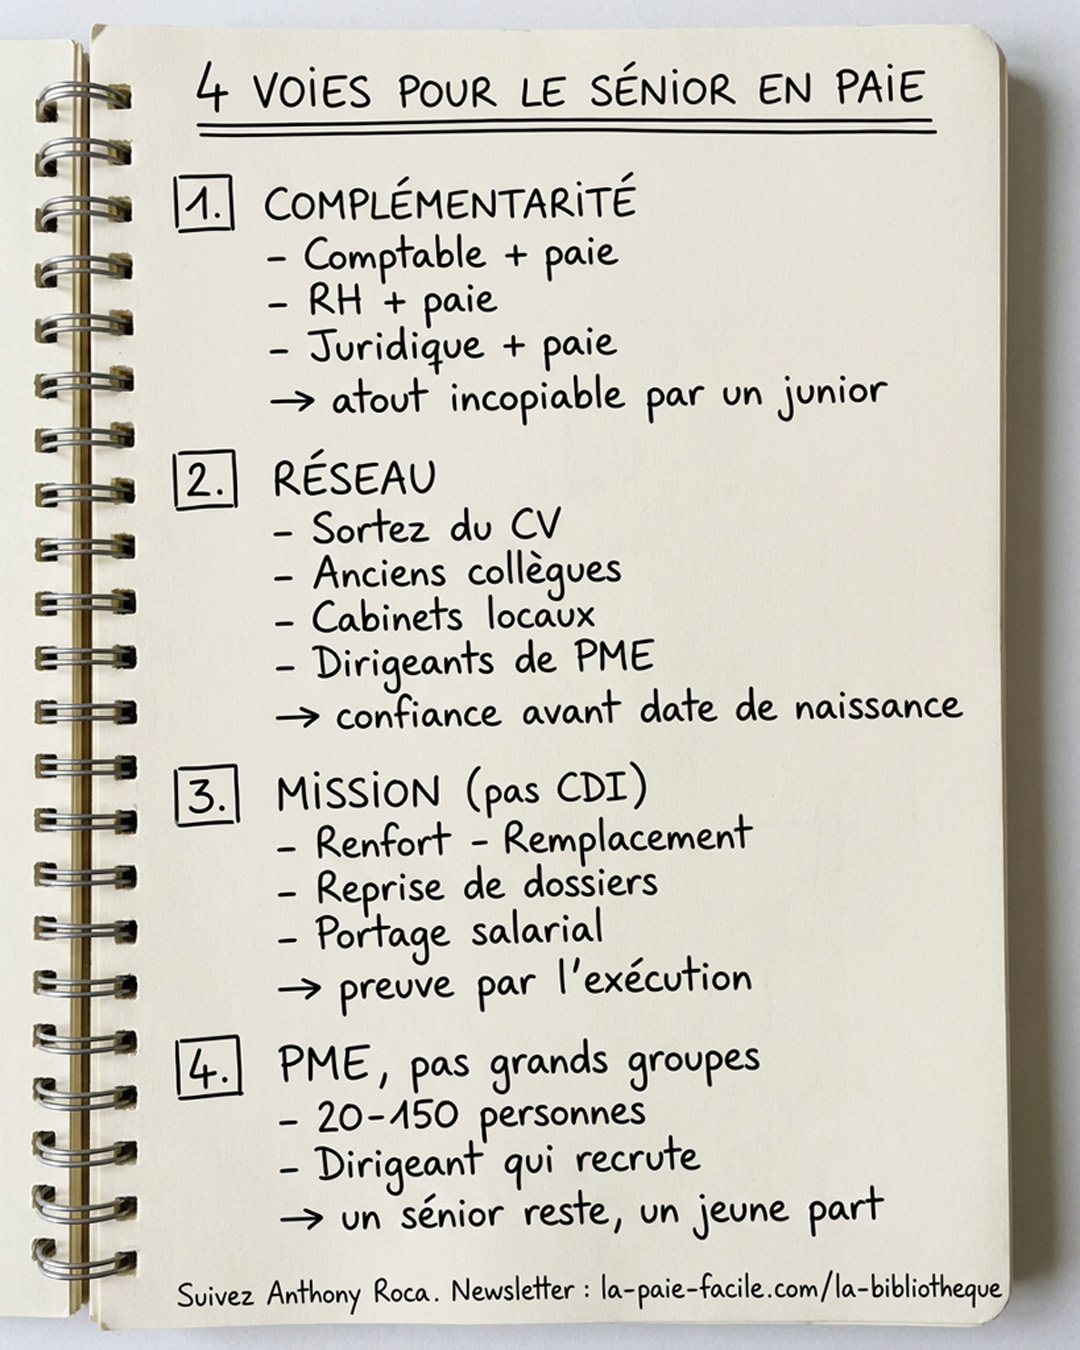 4 VOIES POUR LE SÉNIOR EN PAIE
1. COMPLÉMENTARITÉ
- Comptable + paie
- RH + paie
- Juridique + paie
→ atout incopiable par un junior
2. RÉSEAU
- Sortez du CV
- Anciens collègues
- Cabinets locaux
- Dirigeants de PME
→ confiance avant date de naissance
3. MISSION (pas CDI)
- Renfort - Remplacement
- Reprise de dossiers
- Portage salarial
→ preuve par l'exécution
4. PME, pas grands groupes
- 20-150 personnes
- Dirigeant qui recrute
→ un sénior reste, un jeune part
Suivez Anthony Roca. Newsletter : la-paie-facile.com/la-bibliotheque